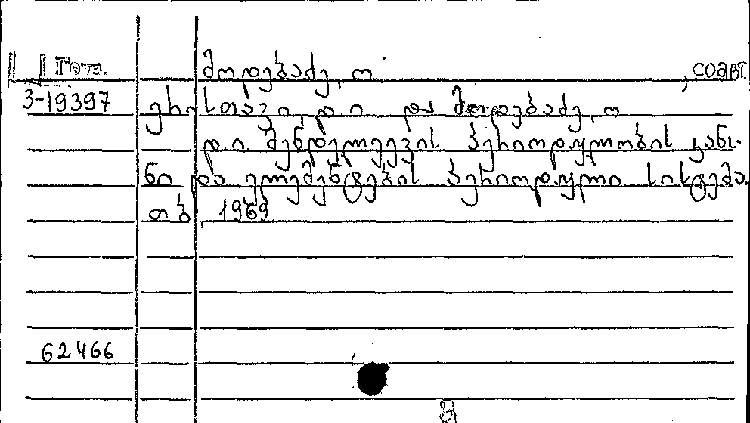 მოდებაძე, ო , СОАВТ.
3-19397 ერისთავი, დ. ი და მოდებაძე, ო
დ. ი მენდელეევის პერიოდულობის კანო-
ნი და ელემენტების პერიოდული სისტემა.
თბ 1969
62466